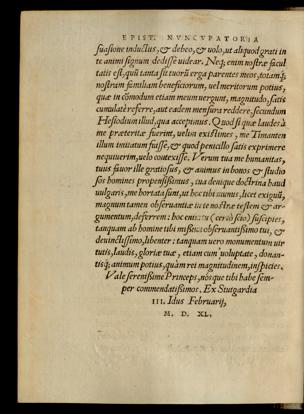 EPIST. NVNCVPATORIA
suasione inductus, & debeo, & uolo, ut aliquod grati in
te animi signum dedisse uidear. Neq; enim nostræ facul
tatis est, quū tanta sit tuorū erga parentes meos, totamq́;
nostram familiam beneficiorum, uel meritorum potius,
quæ in cōmodum etiam meum uergunt, magnitudo, satis
cumulatè referre, aut eadem mensura reddere, secundum
Hesiodum illud, qua accepimus. Quod si quæ laudes à
me præteritæ fuerint, uelim existimes, me Timanten
illum imitatum fuisse, & quod penicillo satis exprimere
nequiuerim, uelo contexisse. Verum tua me humanitas,
tuus fauor ille gratiosus, & animus in bonos & studio
sos homines propensissimus, tua denique doctrina haud
uulgaris, me hortata sunt, ut hoc tibi munus, licet exiguū,
magnum tamen obseruantiæ in te nostræ testem & ar-
gumentum, deferrem: hoc enim tu (certò scio) suscipies,
tanquam ab homine tibi missum obseruantissimo tui, &
deuinctissimo, libenter: tanquam uero monumentum uir
tutis, laudis, gloriæ tuæ, etiam cum uoluptate, donan-
tisq́; animum potius, quàm rei magnitudinem, inspicies.
Vale serenissime Princeps, nosque tibi habe sem-
per commendatissimos. Ex Stutgardia
III. Idus Februarij,
M. D. XL.